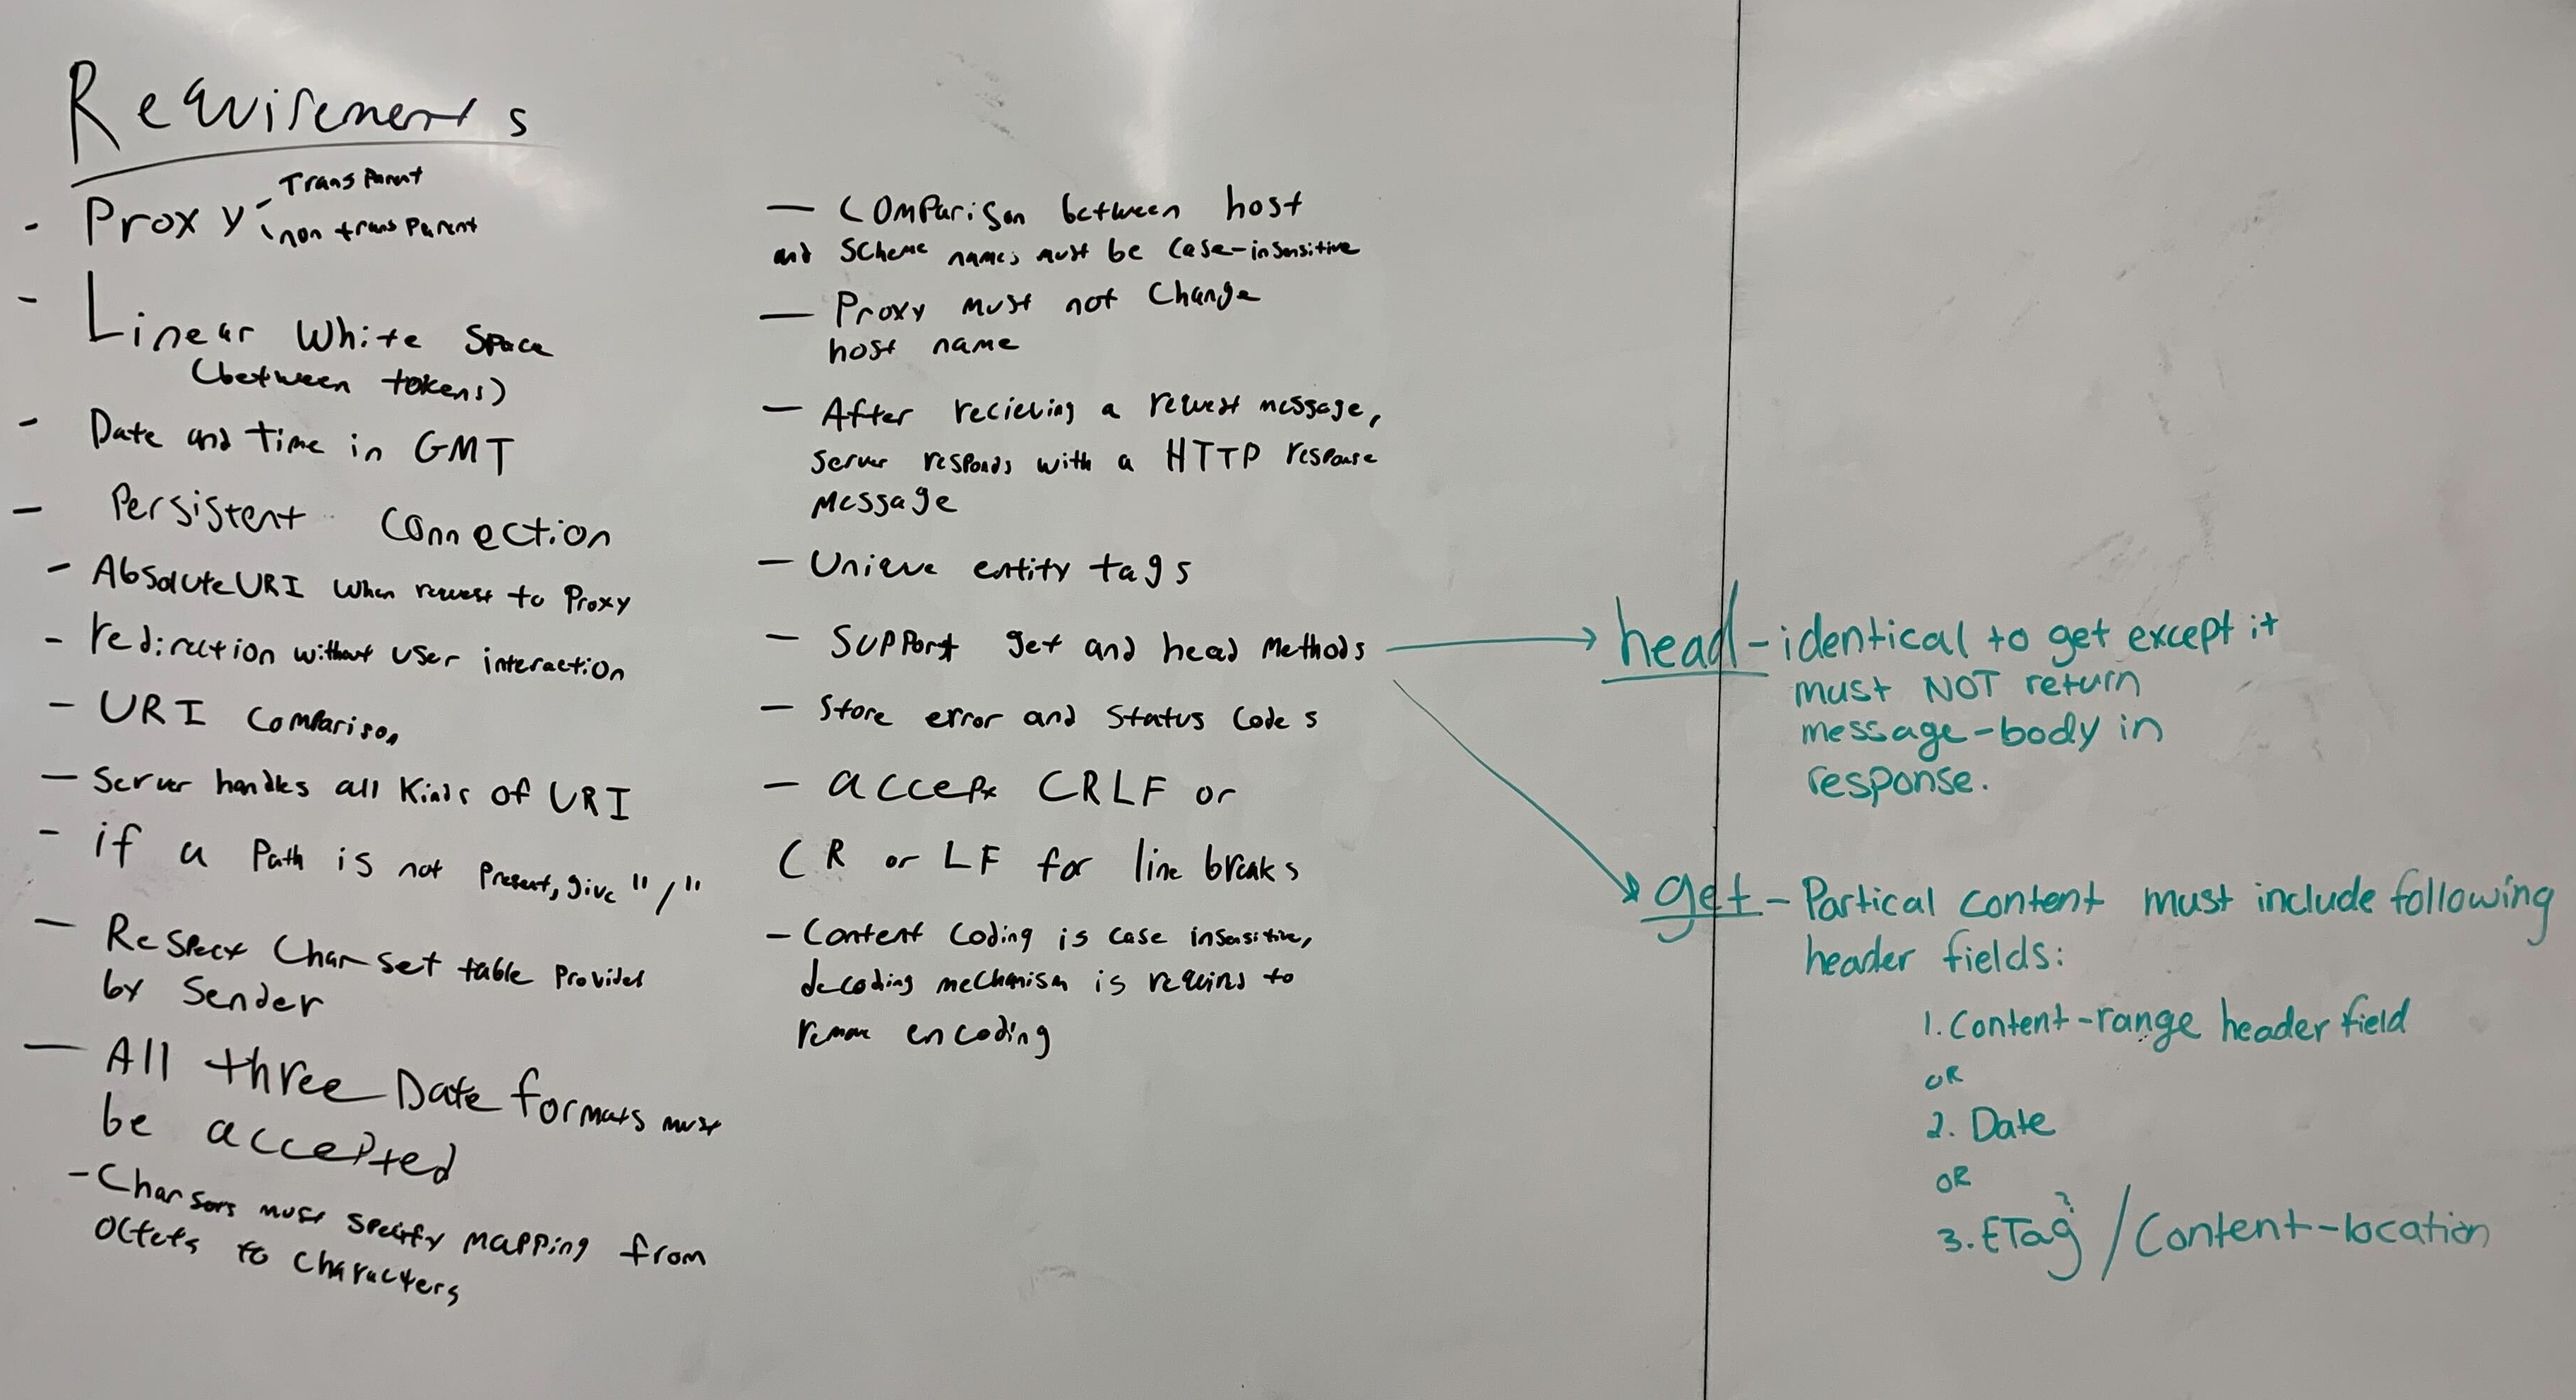 Requirements
- Proxy - Transparent
- non transparent
- Linear White Space
(between tokens)
- Date and time in GMT
- Persistent Connection
- AbsoluteURI when request to Proxy
- redirection without user interaction
- URI Comparison
- Server handles all kinds of URI
- if a Path is not Present, give "/"
- Respect Char set table Provided
by Sender
- All three Date formats must
be accepted
- Char sets must specify mapping from
octets to characters
- Comparison between host
and Scheme names must be case-insensitive
- Proxy must not Change
host name
- After recieving a request message,
server responds with a HTTP response
message
- Unique entity tags
- Support get and head Methods
- Store error and Status Codes
- accept CRLF or
CR or LF for line breaks
- Content Coding is case insensitive,
decoding mechanism is required to
remove encoding
head - identical to get except it
must NOT return
message-body in
response.
get - Partical content must include following
header fields:
1. Content-range header field
OR
2. Date
OR
?
3. ETag / Content-location